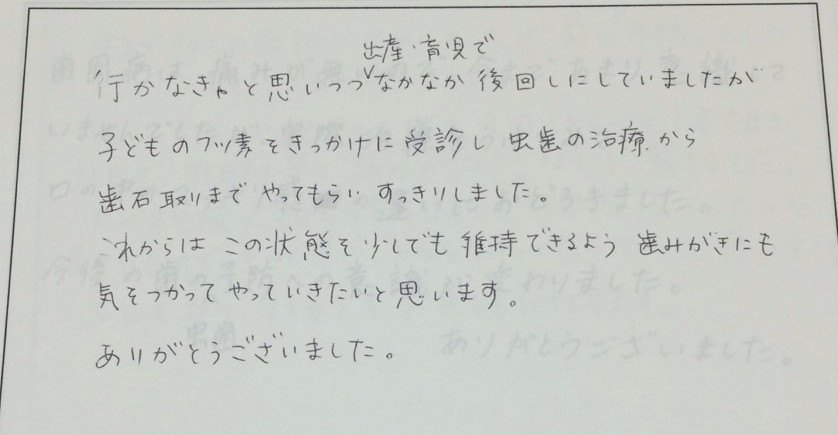 出産・育児で
行かなきゃと思いつつ なかなか 後回しにしていましたが
子どものフッ素をきっかけに 受診し 虫歯の治療から
歯石取りまで やってもらい すっきりしました。
これからは この状態を少しでも 維持できるよう 歯みがきにも
気をつかって やっていきたいと思います。
ありがとうございました。
ありがとうございました。